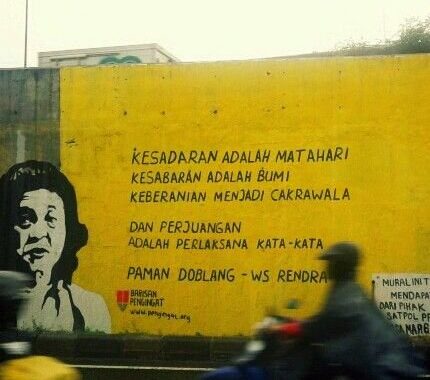 KESADARAN ADALAH MATAHARI
KESABARAN ADALAH BUMI
KEBERANIAN MENJADI CAKRAWALA
DAN PERJUANGAN
ADALAH PERLAKSANA KATA-KATA
PAMAN DOBLANG - WS RENDRA
BARISAN
PENGINGAT
www.pengingat.org
MURAL INI T
MENDAPA
DARI PIHAK
SATPOL PP